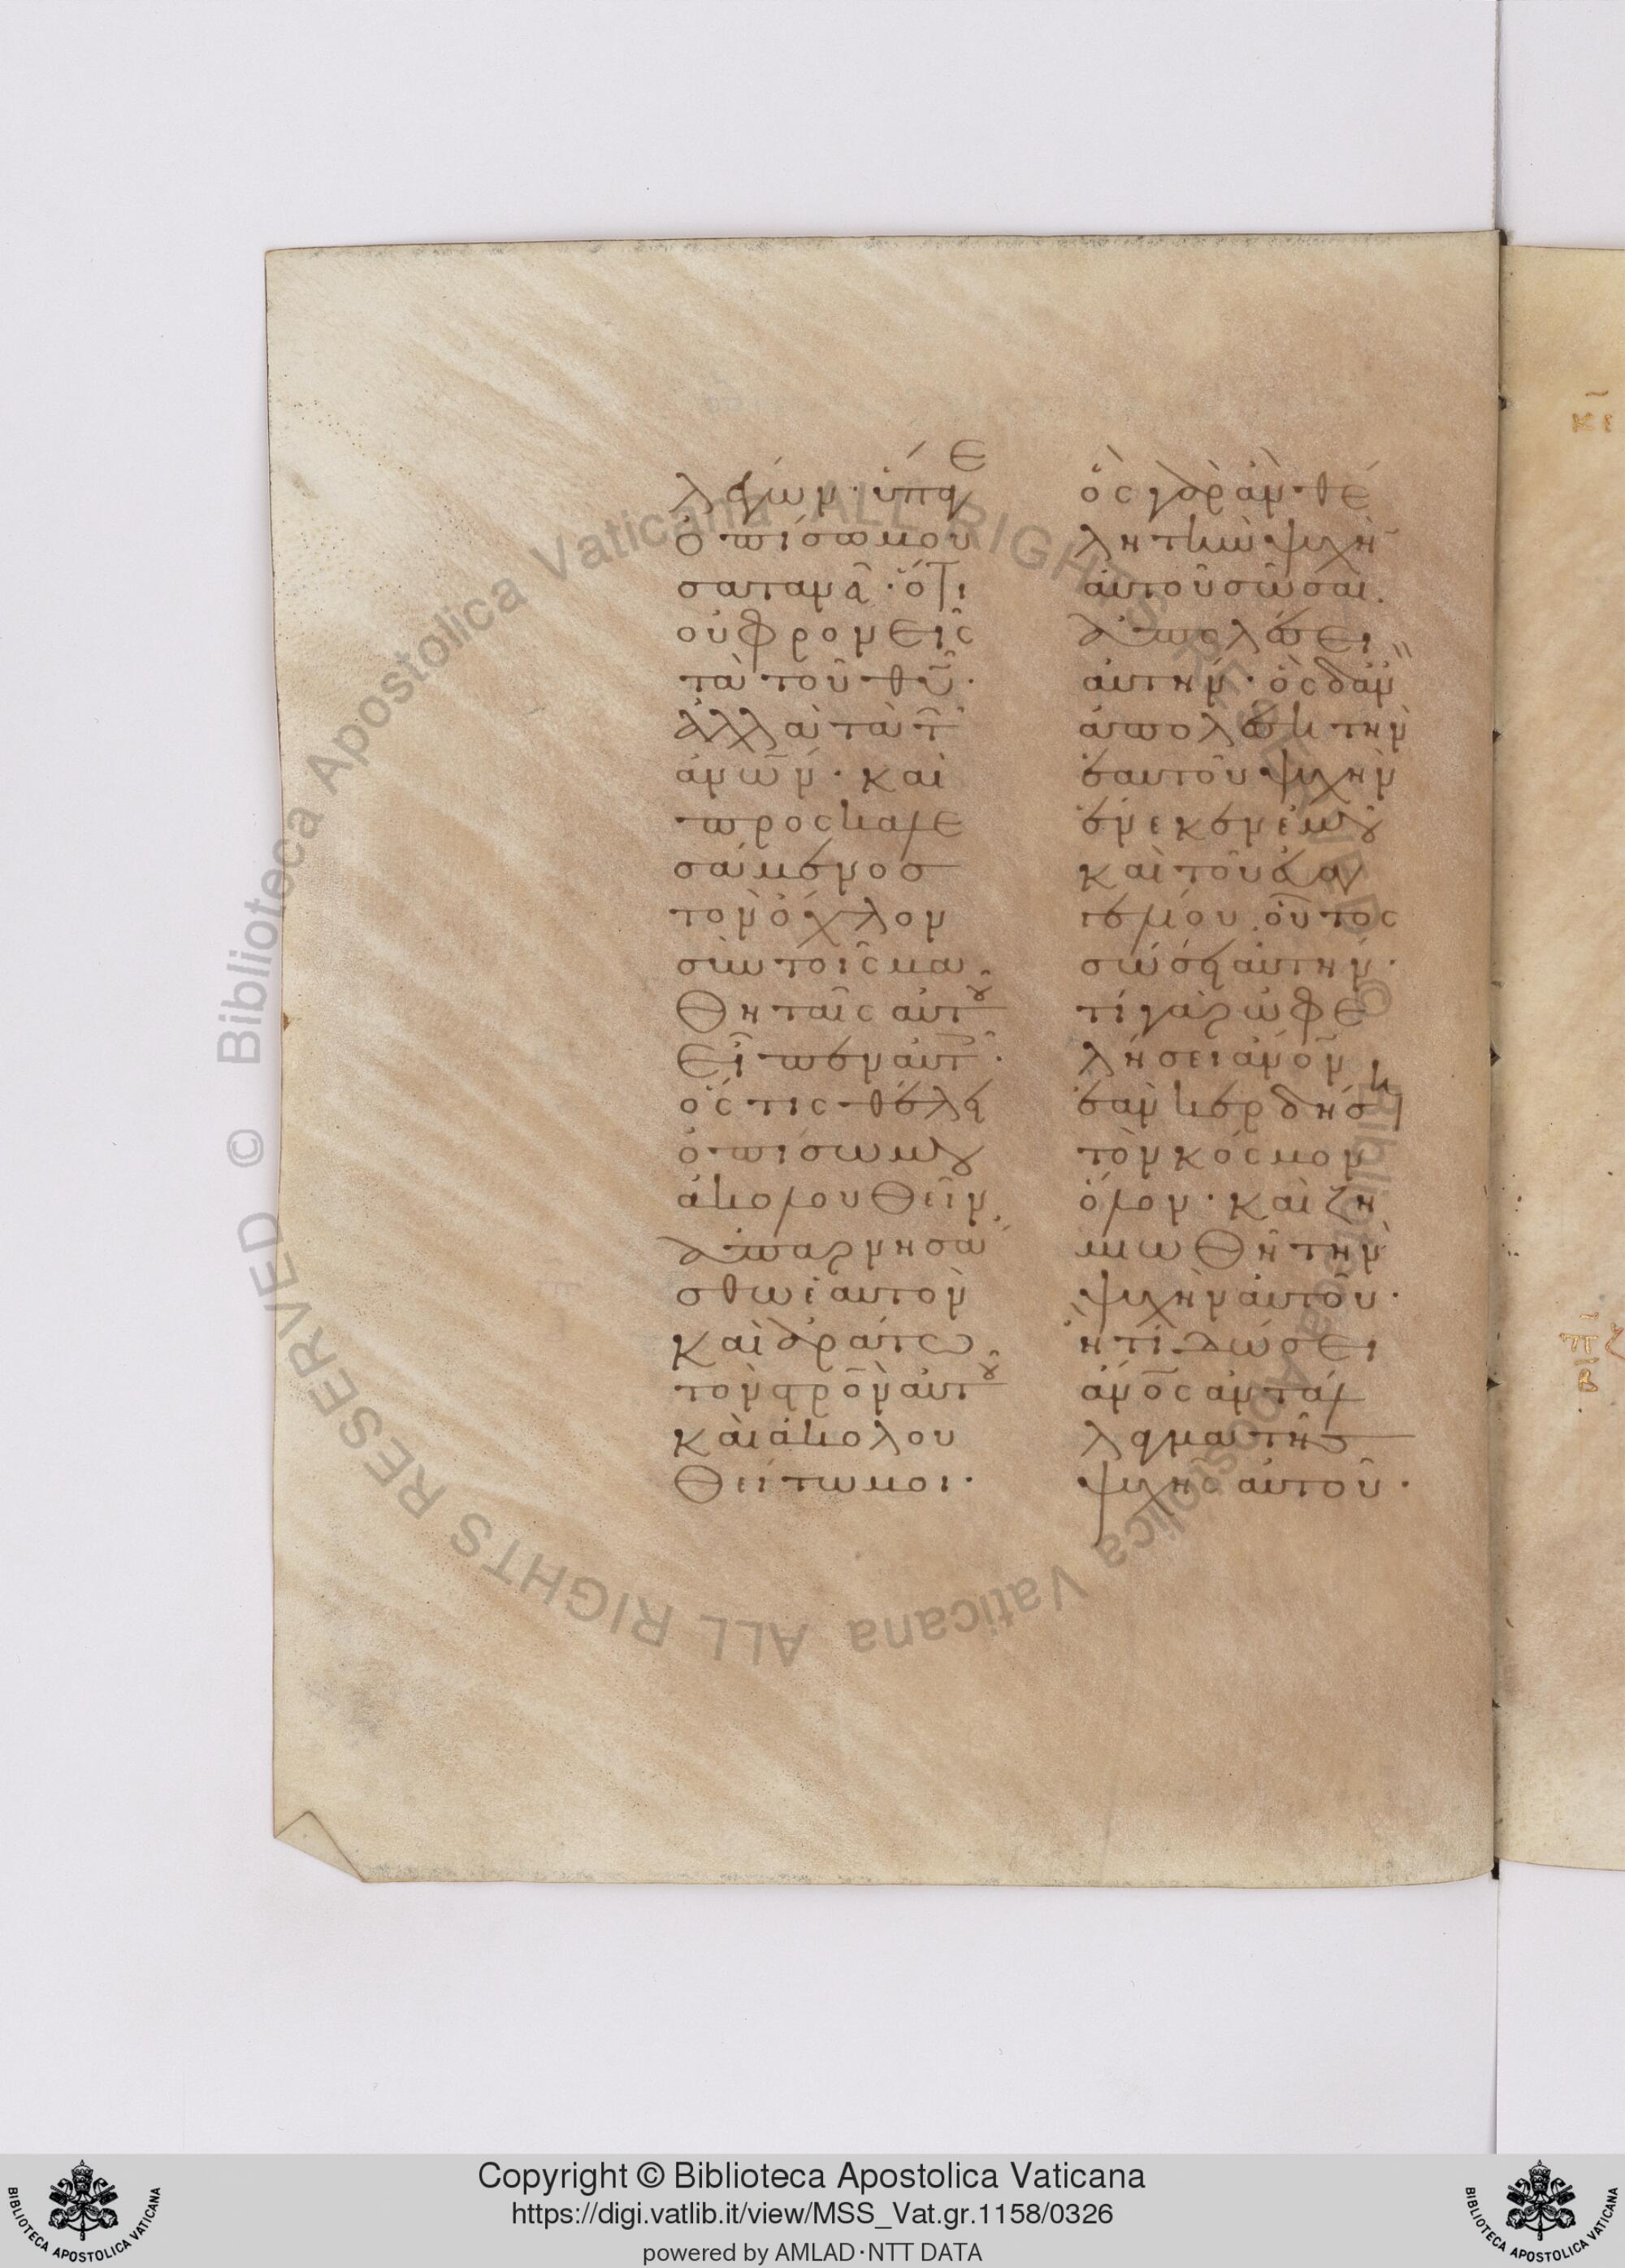 λέγων· ὕπαγε
ὀπίσω μου
σατανᾶ· ὅτι
οὐ φρονεῖς
τὰ τοῦ θῦ·
ἀλλὰ τὰ τῶ
ἀνῶν· καὶ
προσκαλε
σάμενοσ
τὸν ὄχλον
σὺν τοῖς μα
θηταῖς αὐτοῦ
εἶπεν αὐτοῖς·
ὅς τις θέλει
ὀπίσω μου
ἀκολουθεῖν,
ἀπαρνησά
σθω ἑαυτὸν
καὶ ἀράτω
τὸν σρὸν αὐτοῦ
καὶ ἀκολου
θείτω μοι·
ὃς γὰρ ἂν θέ
λη τὴν ψυχὴ
αὐτοῦ σῶσαι.
ἀπολέσει
αὐτήν· ὃς δ' ἂν
ἀπολέσει τὴν
ἑαυτοῦ ψυχὴν
ἕνεκεν ἐμοῦ
καὶ τοῦ εὐαγ
γελίου. οὗτος
σώσει αὐτήν·
τί γὰρ ὠφε
λήσει ἀνον
ἐὰν κερδήση
τὸν κόσμον
ὅλον· καὶ ζη
μιωθῆ τὴν
ψυχὴν αὐτοῦ·
ἢ τί δώσει
ἀνος ἀντάλ
λαγμα τῆσ
ψυχῆς αὐτοῦ·
κε
πε
Copyright © Biblioteca Apostolica Vaticana
https://digi.vatlib.it/view/MSS_Vat.gr.1158/0326
powered by AMLAD·NTT DATA
BIBLIOTECA APOSTOLICA VATICANA
BIBLIOTECA APOSTOLICA VATICANA
© Biblioteca Apostolica Vaticana ALL RIGHTS RESERVED
© Biblioteca Apostolica Vaticana ALL RIGHTS RESERVED